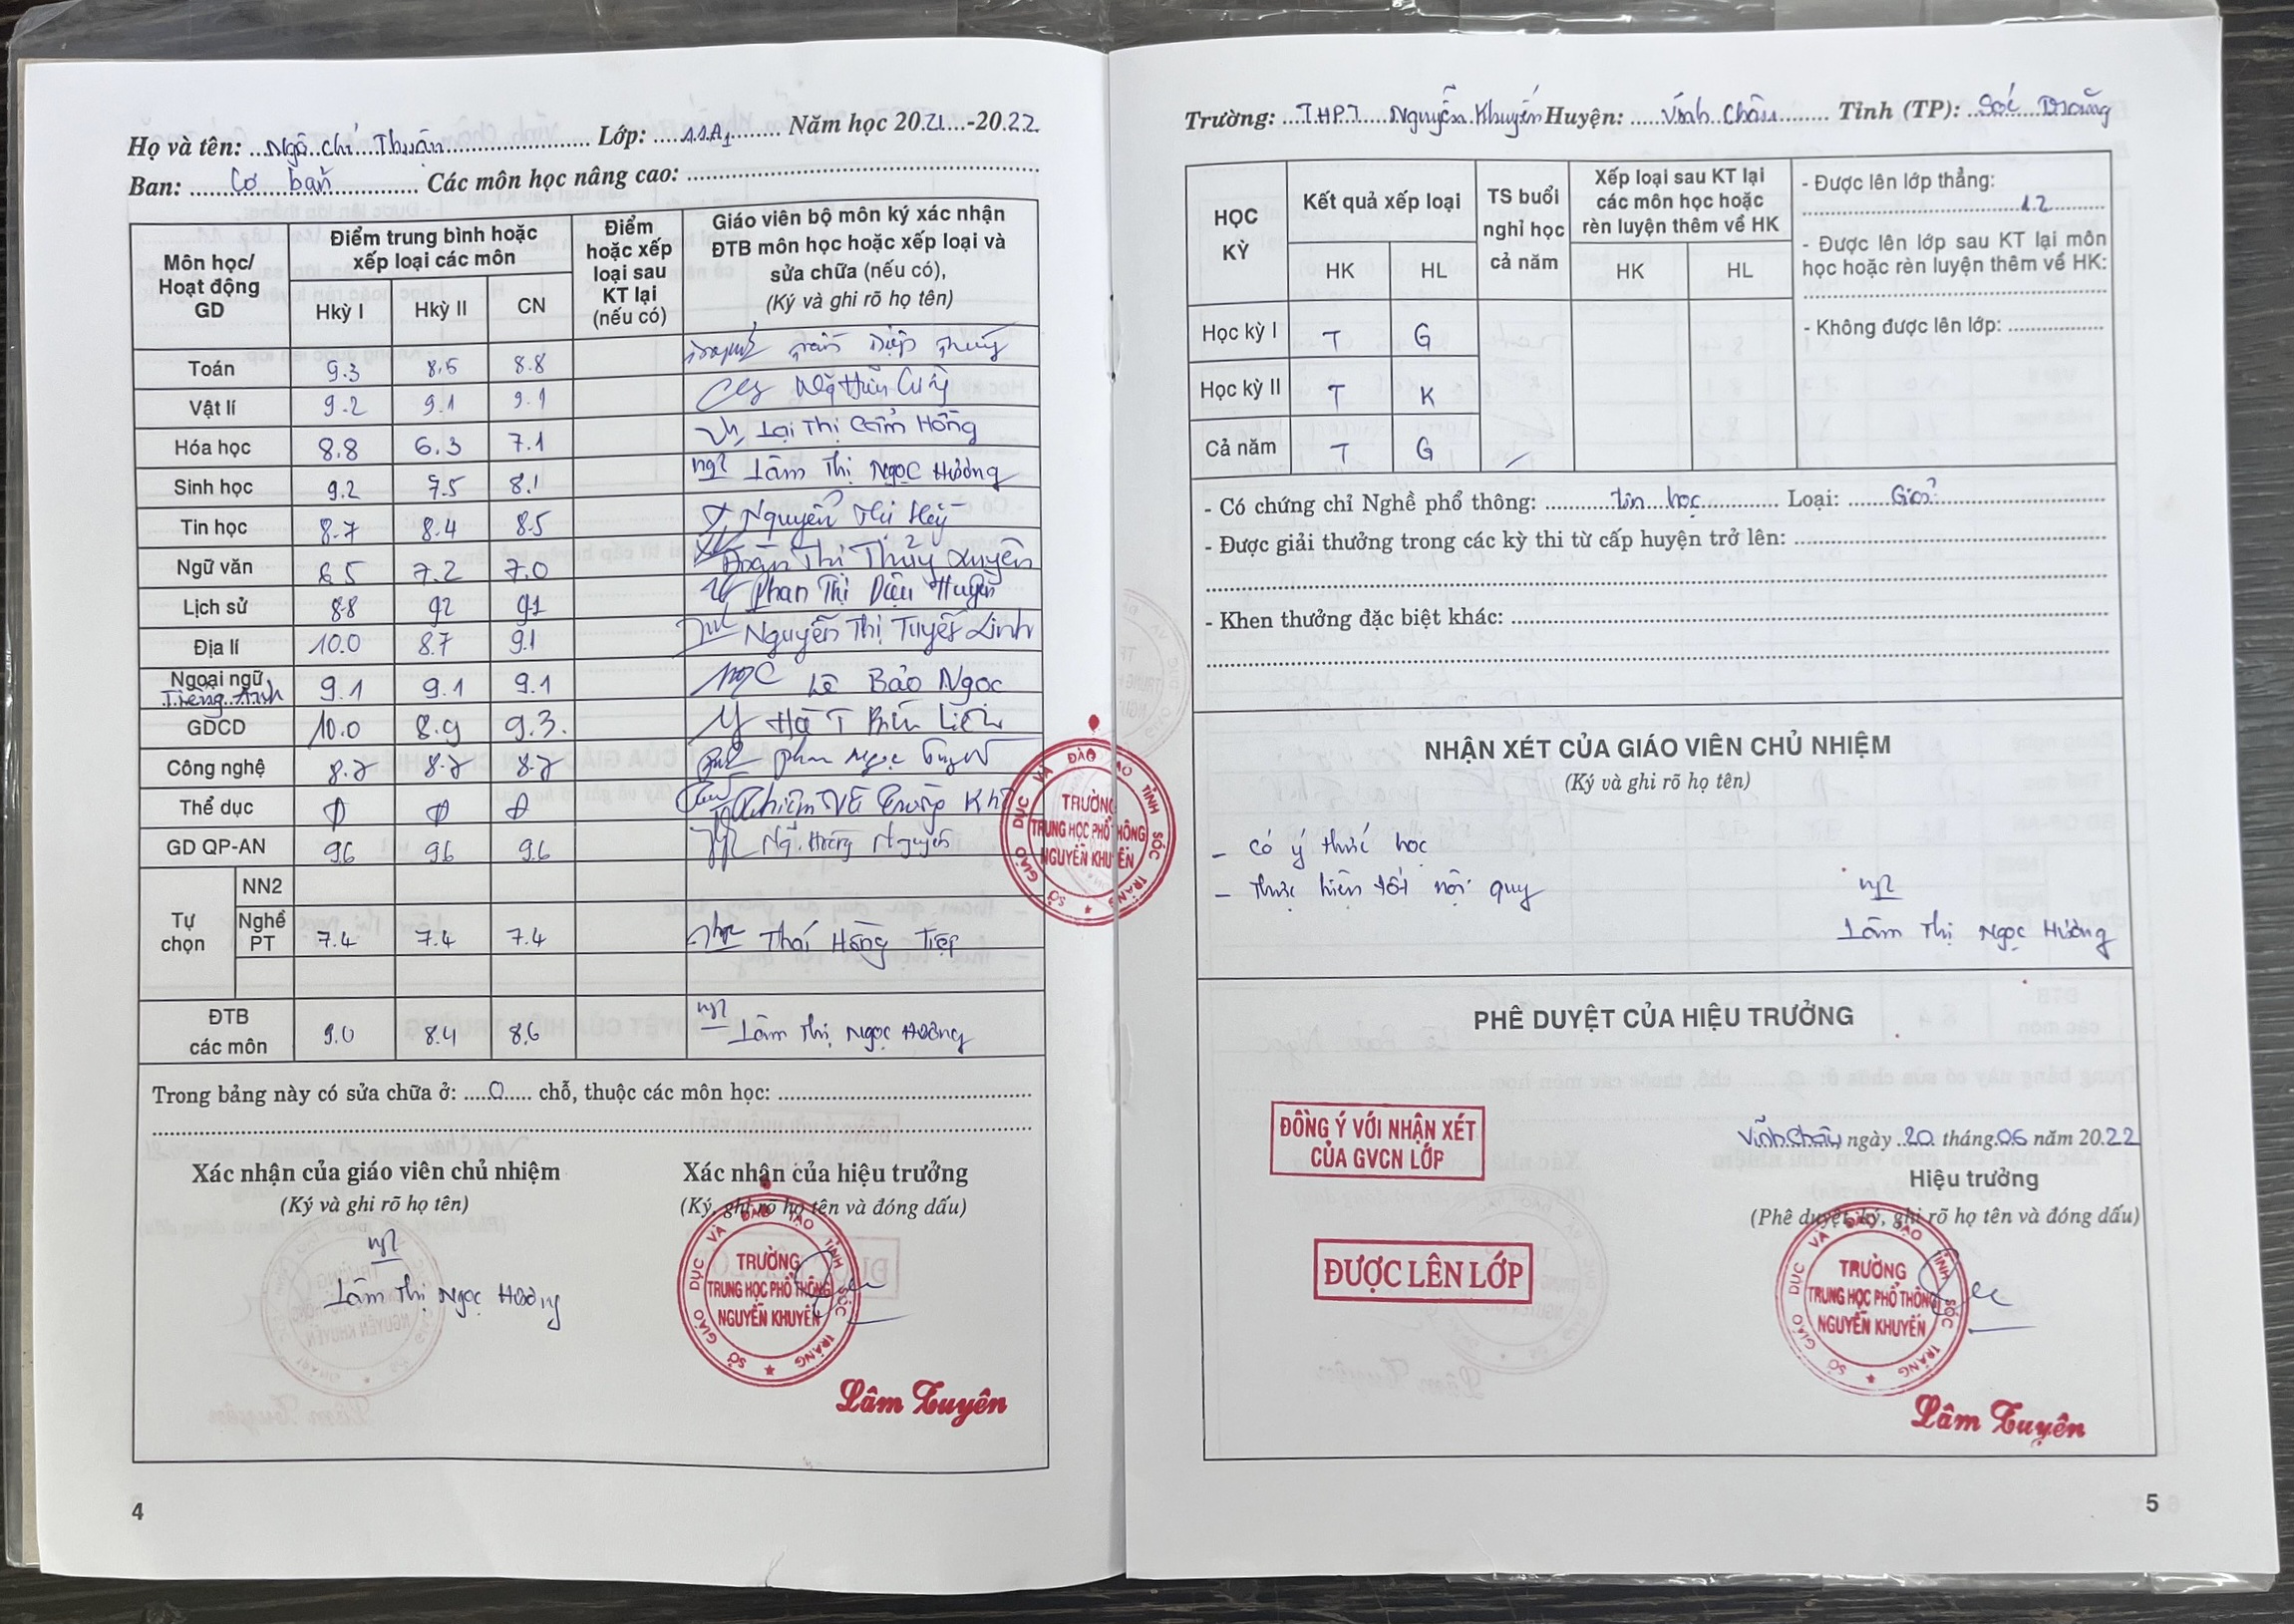 Họ và tên: Ngô Chí Thuận Lớp: 11A1 Năm học 2021-2022
Ban: Cơ bản Các môn học nâng cao:
Môn học/ Hoạt động GD
Điểm trung bình hoặc xếp loại các môn
Hkỳ I Hkỳ II CN
Điểm hoặc xếp loại sau KT lại (nếu có)
Giáo viên bộ môn ký xác nhận ĐTB môn học hoặc xếp loại và sửa chữa (nếu có),
(Ký và ghi rõ họ tên)
Toán 9.3 8.5 8.8
Vật lí 9.2 9.1 9.1
Hóa học 8.8 6.3 7.1 Lại Thị Cẩm Hồng
Sinh học 9.2 7.5 8.1 Lâm Thị Ngọc Hương
Tin học 8.7 8.4 8.5 Nguyễn Thị
Ngữ văn 6.5 7.2 7.0 Đoàn Thị Thúy Quyên
Lịch sử 8.8 9.2 9.1 Phan Thị Diệu Huyền
Địa lí 10.0 8.7 9.1 Nguyễn Thị Tuyết Linh
Ngoại ngữ Tiếng Anh 9.1 9.1 9.1 Lê Bảo Ngọc
GDCD 10.0 8.9 9.3
Công nghệ 8.7 8.7 8.7
Thể dục Đ Đ Đ
GD QP-AN 9.6 9.6 9.6
Tự chọn
NN2
Nghề PT 7.4 7.4 7.4 Thái Hồng Tiệp
ĐTB các môn 9.0 8.4 8.6 Lâm Thị Ngọc Hương
Trong bảng này có sửa chữa ở: 0 chỗ, thuộc các môn học:
Xác nhận của giáo viên chủ nhiệm
(Ký và ghi rõ họ tên)
Lâm Thị Ngọc Hương
Xác nhận của hiệu trưởng
(Ký, ghi rõ họ tên và đóng dấu)
SỞ GIÁO DỤC VÀ ĐÀO TẠO TỈNH SÓC TRĂNG
TRƯỜNG
TRUNG HỌC PHỔ THÔNG
NGUYỄN KHUYẾN
Lâm Tuyên
4
SỞ GIÁO DỤC VÀ ĐÀO TẠO TỈNH SÓC TRĂNG
TRƯỜNG
TRUNG HỌC PHỔ THÔNG
NGUYỄN KHUYẾN
Trường: THPT Nguyễn Khuyến Huyện: Vĩnh Châu Tỉnh (TP): Sóc Trăng
HỌC KỲ
Kết quả xếp loại
HK HL
TS buổi nghỉ học cả năm
Xếp loại sau KT lại các môn học hoặc rèn luyện thêm về HK
HK HL
Học kỳ I T G
Học kỳ II T K
Cả năm T G
- Được lên lớp thẳng:
12
- Được lên lớp sau KT lại môn
học hoặc rèn luyện thêm về HK:
- Không được lên lớp:
- Có chứng chỉ Nghề phổ thông: Tin học Loại: Giỏi
- Được giải thưởng trong các kỳ thi từ cấp huyện trở lên:
- Khen thưởng đặc biệt khác:
NHẬN XÉT CỦA GIÁO VIÊN CHỦ NHIỆM
(Ký và ghi rõ họ tên)
- Có ý thức học
- Thực hiện tốt nội quy
Lâm Thị Ngọc Hương
PHÊ DUYỆT CỦA HIỆU TRƯỞNG
ĐỒNG Ý VỚI NHẬN XÉT
CỦA GVCN LỚP
ĐƯỢC LÊN LỚP
Vĩnh Châu ngày 20 tháng 06 năm 2022
Hiệu trưởng
(Phê duyệt, ký, ghi rõ họ tên và đóng dấu)
SỞ GIÁO DỤC VÀ ĐÀO TẠO TỈNH SÓC TRĂNG
TRƯỜNG
TRUNG HỌC PHỔ THÔNG
NGUYỄN KHUYẾN
Lâm Tuyên
5